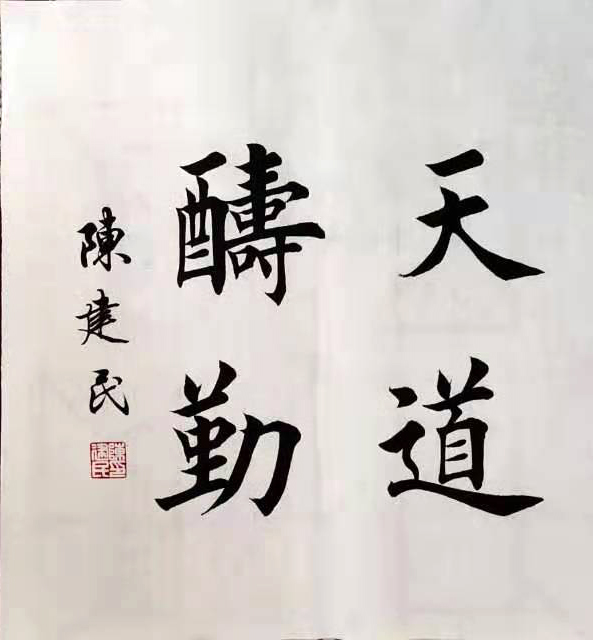 天道
醻勤
陳建民